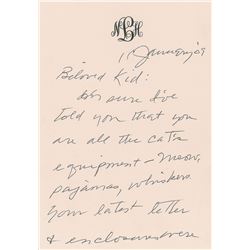 NBH
11 January 09
Beloved Kid:
I'm sure I've
told you that you
are all the cat's
equipment — Meow,
pajamas, whiskers
Your latest letter
& enclosures were